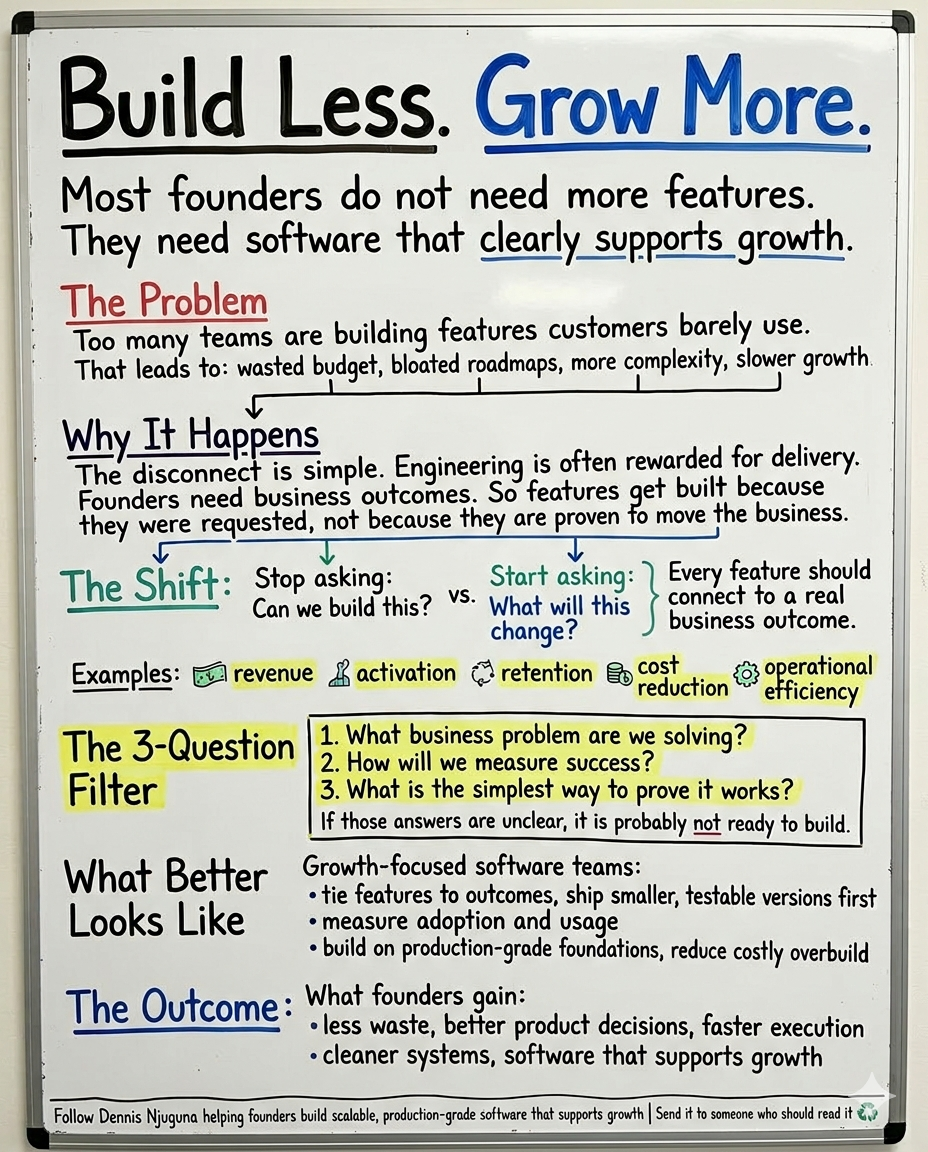 Build Less. Grow More.
Most founders do not need more features.
They need software that clearly supports growth.
The Problem
Too many teams are building features customers barely use.
That leads to: wasted budget, bloated roadmaps, more complexity, slower growth.
Why It Happens
The disconnect is simple. Engineering is often rewarded for delivery.
Founders need business outcomes. So features get built because
they were requested, not because they are proven to move the business.
The Shift:
Stop asking:
Can we build this?
vs.
Start asking:
What will this
change?
Every feature should
connect to a real
business outcome.
Examples: revenue activation retention
cost
reduction
operational
efficiency
The 3-Question
Filter
1. What business problem are we solving?
2. How will we measure success?
3. What is the simplest way to prove it works?
If those answers are unclear, it is probably not ready to build.
What Better
Looks Like
Growth-focused software teams:
• tie features to outcomes, ship smaller, testable versions first
• measure adoption and usage
• build on production-grade foundations, reduce costly overbuild
The Outcome:
What founders gain:
• less waste, better product decisions, faster execution
• cleaner systems, software that supports growth
Follow Dennis Njuguna helping founders build scalable, production-grade software that supports growth | Send it to someone who should read it